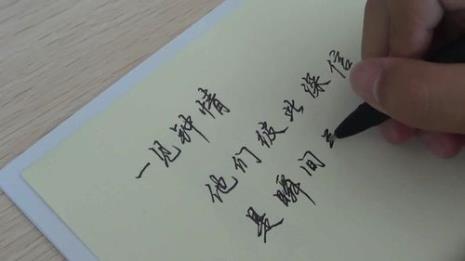 一见钟情
他们彼此深信
是瞬间